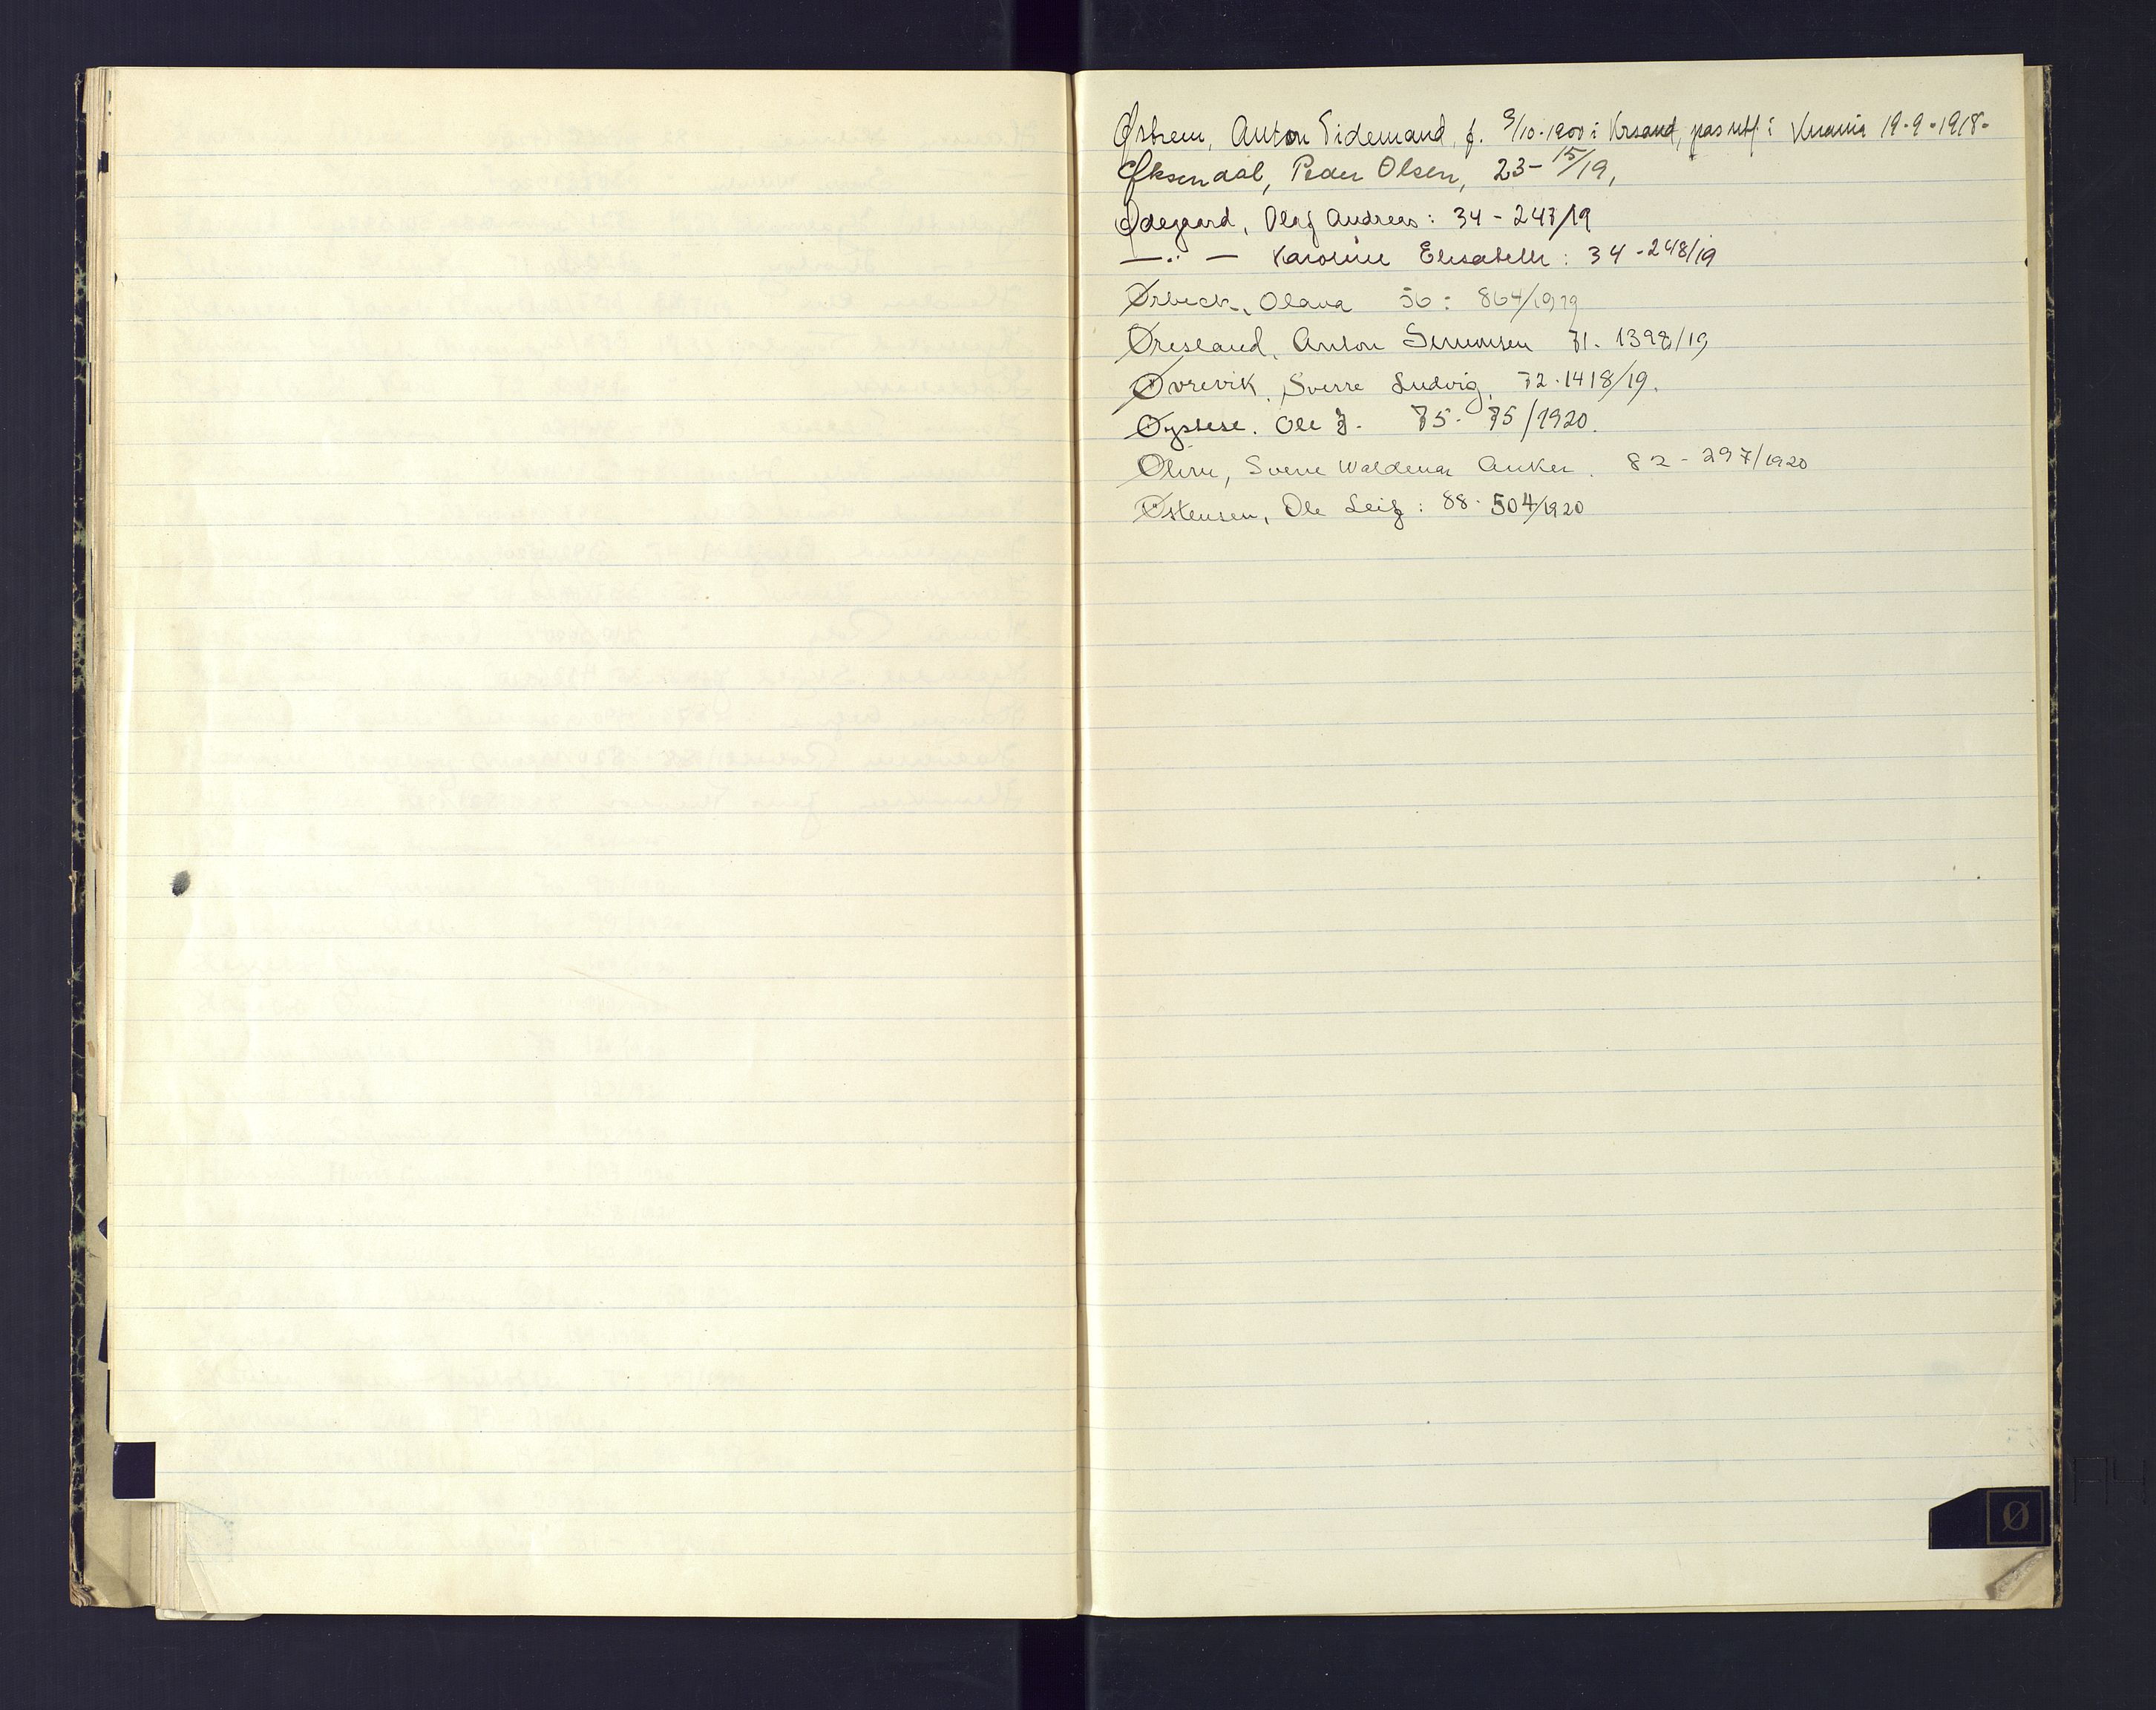 Østrem, Anton Tidemand, f. 9/10-1900 i Krsand, pas utf. i Kria­nia 19-9-1918.
Øksendal, Peder Olsen, 23 - 15/19,
Ødegaard, Olaf Andreas: 34 - 247/19
—"— Karoline Elisabeth: 34 - 248/19
Ørbeck, Olava 56: 864/1919
Øresland, Anton Simonsen 71. 1398/19
Øvrevik, Sverre Ludvig, 72. 1418/19.
Øystese. Ole J. 75 - 75/1920.
Øhrn, Sverre Waldemar Anker. 82 - 297/1920
Østensen, Ole Leif: 88 - 504/1920
Ø